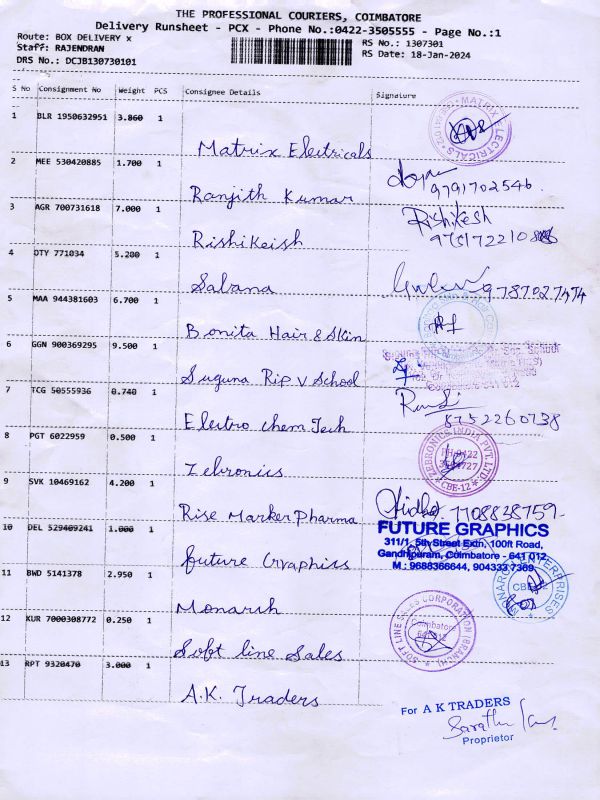 THE PROFESSIONAL COURIERS, COIMBATORE
Delivery Runsheet - PCX - Phone No.:0422-3505555 - Page No.:1
Route: BOX DELIVERY x
RS No.: 1307301
Staff: RAJENDRAN
RS Date: 18-Jan-2024
DRS No.: DCJB130730101
S No Consignment No Weight PCS Consignee Details Signature
1 BLR 1950632951 3.860 1
MATRIX ELECTRICALS
Matrix Electricals
2 MEE 530420885 1.700 1
9791702546
Ranjith Kumar
3 AGR 700731618 7.000 1
Rishikesh
Rishikeish
4 OTY 771034 5.200 1
9787827474
Sabana
5 MAA 944381603 6.700 1
Bonita Hair & Skin
6 GGN 900369295 9.500 1
Suguna Rip V School
7 TCG 50555936 0.740 1
8752260738
Electro chem Tech
8 PGT 6022959 0.500 1
ZEBRONICS INDIA PVT. LTD.
CBE-12
Zebronics
9 SVK 10469162 4.200 1
7708828759
Rise Marker Pharma
10 DEL 529409241 1.000 1
FUTURE GRAPHICS
311/1, 5th Street Extn, 100ft Road,
Gandhipuram, Coimbatore - 641 012.
M.: 9688366644, 904333 7369
future Graphics
11 BWD 5141378 2.950 1
MONARCH ENTERPRISES
Monarsh
12 KUR 7000308772 0.250 1
SOFT LINE SALES CORPORATION (BRANCH)
Coimbatore
Soft line Sales
13 RPT 9320470 3.000 1
A.K. Traders
For A K TRADERS
Proprietor